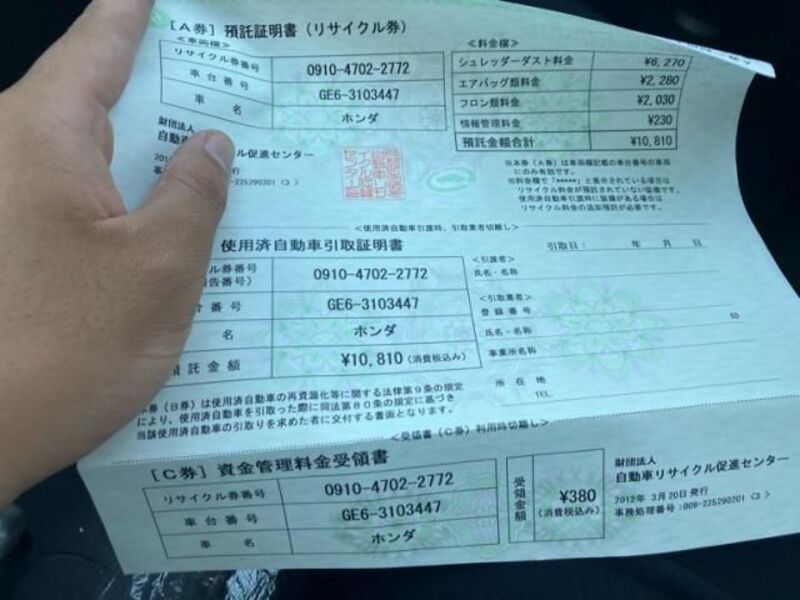 [A券] 預託証明書(リサイクル券)
<車両欄>
リサイクル券番号 0910-4702-2772
車台番号 GE6-3103447
車 名 ホンダ
<料金欄>
シュレッダーダスト料金 ¥6,270
エアバッグ類料金 ¥2,280
フロン類料金 ¥2,030
情報管理料金 ¥230
預託金額合計 ¥10,810
財団法人
自動 ル促進センター
行
-225290201 <3>
※本券(A券)は車両欄記載の車台番号の車両
にのみ有効です。
※料金欄で「*****」と表示されている場合は
リサイクル料金が預託されていない装備です。
使用済自動車引渡時に装備がある場合は
リサイクル料金の追加預託が必要です。
<使用済自動車引渡時、引取業者切離し>
使用済自動車引取証明書
ル券番号
告番号) 0910-4702-2772
台番号 GE6-3103447
名 ホンダ
託金額 ¥10,810(消費税込み)
引取日: 年 月 日
<引渡者>
氏名・名称
<引取業者>
登録番号
氏名・名称 印
事業所名称
所在地
TEL
券(B券)は使用済自動車の再資源化等に関する法律第9条の規定
により、使用済自動車を引取った際に同法第80条の規定に基づき
当該使用済自動車の引取りを求めた者に交付する書面となります。
<受領書(C券)利用時切離し>
[C券] 資金管理料金受領書
リサイクル券番号 0910-4702-2772
車台番号 GE6-3103447
車 名 ホンダ
受領金額 ¥380
(消費税込み)
財団法人
自動車リサイクル促進センター
2012年 3月20日発行
事務処理番号:008-225290201 <3>